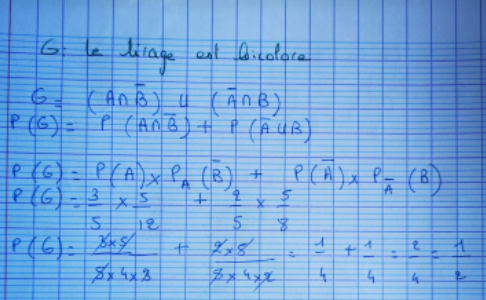 G: le tirage est bicolore
G = (A∩B̅) ∪ (A̅∩B)
P(G) = P(A∩B̅) + P(A̅∪B)
P(G) = P(A) × P_A(B̅) + P(A̅) × P_A̅(B)
P(G) = 3/5 × 5/12 + 2/5 × 5/8
P(G) = 3×5/5×4×3 + 2×5/5×4×2 = 1/4 + 1/4 = 2/4 = 1/2